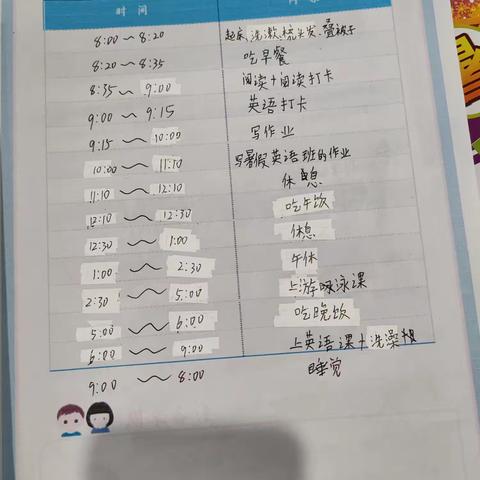 时间
8:00 ~ 8:20 起床、洗漱、梳头发、叠被子
8:20 ~ 8:35 吃早餐
8:35 ~ 9:00 阅读+阅读打卡
9:00 ~ 9:15 英语打卡
9:15 ~ 10:00 写作业
10:00 ~ 11:10 写暑假英语班的作业
11:10 ~ 12:10 休息
12:10 ~ 12:30 吃午饭
12:30 ~ 1:00 休息
1:00 ~ 2:30 午休
2:30 ~ 5:00 上游泳课
5:00 ~ 6:00 吃晚饭
6:00 ~ 9:00 上英语课+洗澡
9:00 ~ 8:00 睡觉